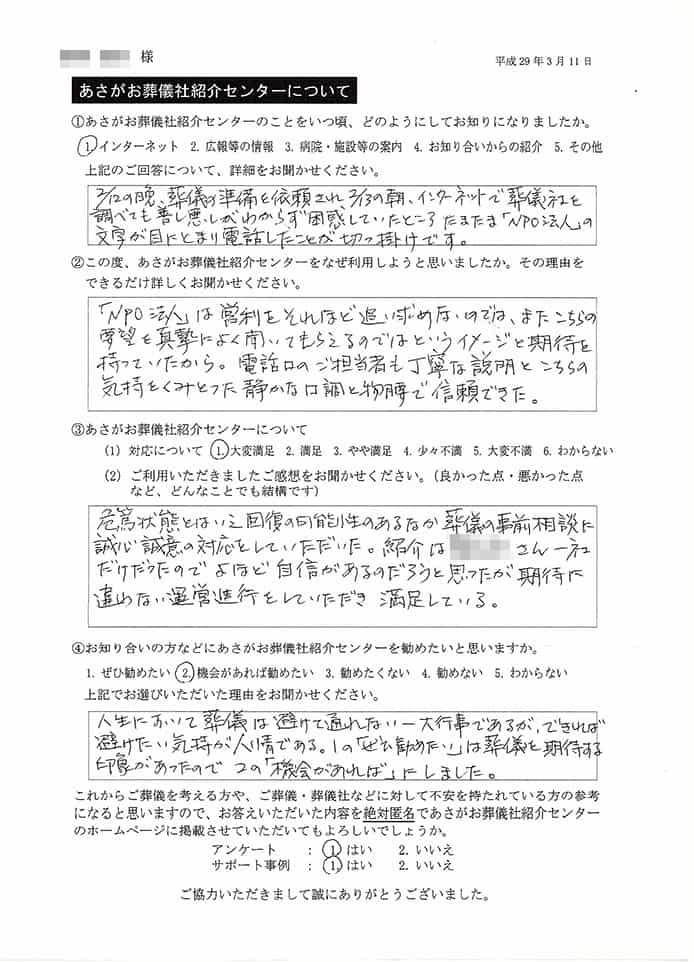 様
平成29年3月11日
あさがお葬儀社紹介センターについて
①あさがお葬儀社紹介センターのことをいつ頃、どのようにしてお知りになりましたか。
1. インターネット 2. 広報等の情報 3. 病院・施設等の案内 4. お知り合いからの紹介 5. その他
上記のご回答について、詳細をお聞かせください。
2/12の晩、葬儀の準備を依頼され2/13の朝、インターネットで葬儀社を
調べても善し悪しがわからず困惑していたところたまたま「NPO法人」の
文字が目にとまり電話したことが切っ掛けです。
②この度、あさがお葬儀社紹介センターをなぜ利用しようと思いましたか。その理由を
できるだけ詳しくお聞かせください。
「NPO法人」は営利をそれほど追い求めないのでは、またこちらの
要望を真摯によく聞いてもらえるのではというイメージと期待を
持っていたから。電話口のご担当者も丁寧な説明とこちらの
気持をくみとった静かな口調と物腰で信頼できた。
③あさがお葬儀社紹介センターについて
(1) 対応について 1. 大変満足 2. 満足 3. やや満足 4. 少々不満 5. 大変不満 6. わからない
(2) ご利用いただきましたご感想をお聞かせください。(良かった点・悪かった点
など、どんなことでも結構です)
危篤状態とはいえ回復の可能性のあるなか葬儀の事前相談に
誠心誠意の対応をしていただいた。紹介は さん一社
だけだったのでよほど自信があるのだろうと思ったが期待に
違わない運営進行をしていただき満足している。
④お知り合いの方などにあさがお葬儀社紹介センターを勧めたいと思いますか。
1. ぜひ勧めたい 2. 機会があれば勧めたい 3. 勧めたくない 4. 勧めない 5. わからない
上記でお選びいただいた理由をお聞かせください。
人生において葬儀は避けて通れない一大行事であるが、できれば
避けたい気持が人情である。1の「ぜひ勧めたい」は葬儀を期待する
印象があったので2の「機会があれば」にしました。
これからご葬儀を考える方や、ご葬儀・葬儀社などに対して不安を持たれている方の参考
になると思いますので、お答えいただいた内容を絶対匿名であさがお葬儀社紹介センター
のホームページに掲載させていただいてもよろしいでしょうか。
アンケート : 1. はい 2. いいえ
サポート事例 : 1. はい 2. いいえ
ご協力いただきまして誠にありがとうございました。